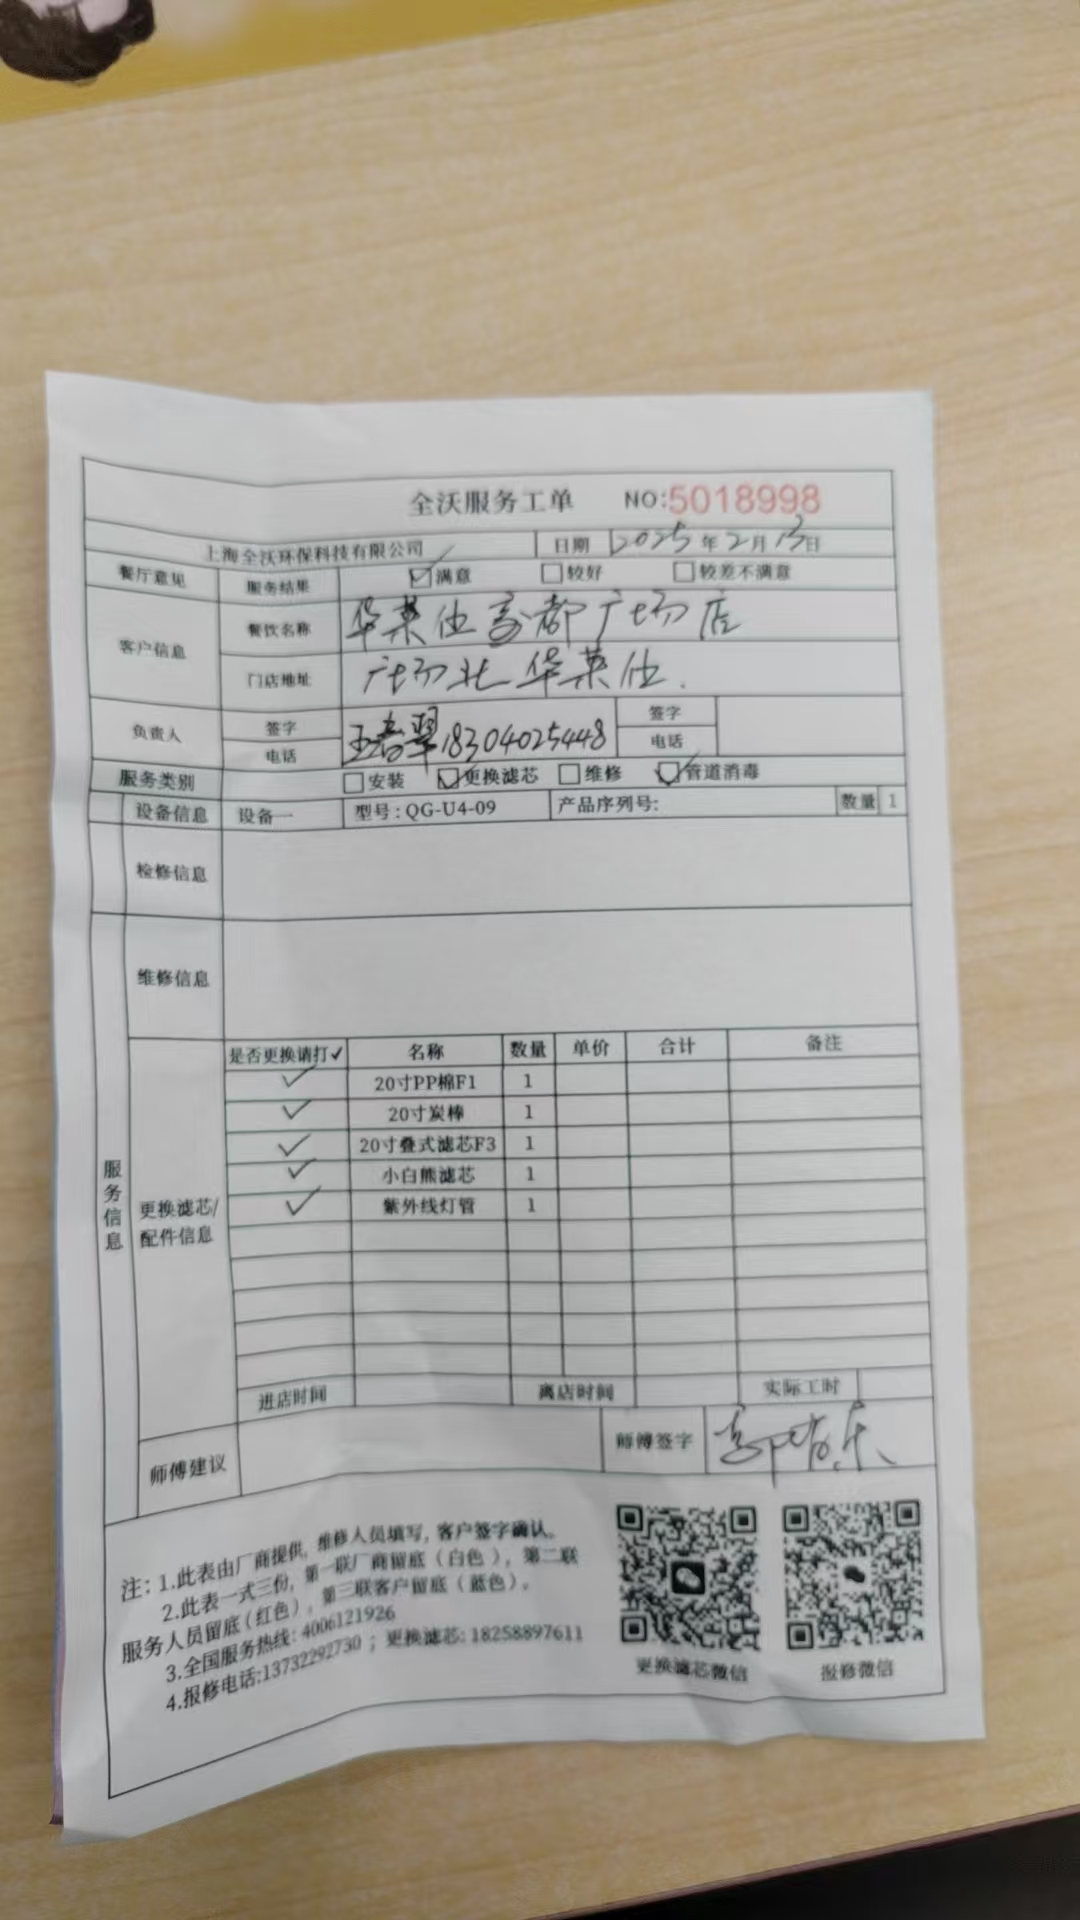 全沃服务工单 NO:5018998
上海全沃环保科技有限公司 日期 2025年2月13日
餐厅意见 服务结果 ☑满意 □较好 □较差不满意
客户信息 餐饮名称 华莱仕富都广场店
门店地址 广场北华莱仕.
负责人 签字 王春翠 18304025448 签字
电话 电话
服务类别 □安装 ☑更换滤芯 □维修 ☑管道消毒
设备信息 设备一 型号:QG-U4-09 产品序列号: 数量 1
检修信息
维修信息
服务信息
更换滤芯/配件信息
是否更换请打✓ 名称 数量 单价 合计 备注
✓ 20寸PP棉F1 1
✓ 20寸炭棒 1
✓ 20寸叠式滤芯F3 1
✓ 小白熊滤芯 1
✓ 紫外线灯管 1
进店时间 离店时间 实际工时
师傅建议 师傅签字
注:1.此表由厂商提供,维修人员填写,客户签字确认。
2.此表一式三份,第一联厂商留底(白色),第二联
服务人员留底(红色),第三联客户留底(蓝色)。
3.全国服务热线:4006121926
4.报修电话:13732292730;更换滤芯:18258897611
更换滤芯微信 报修微信